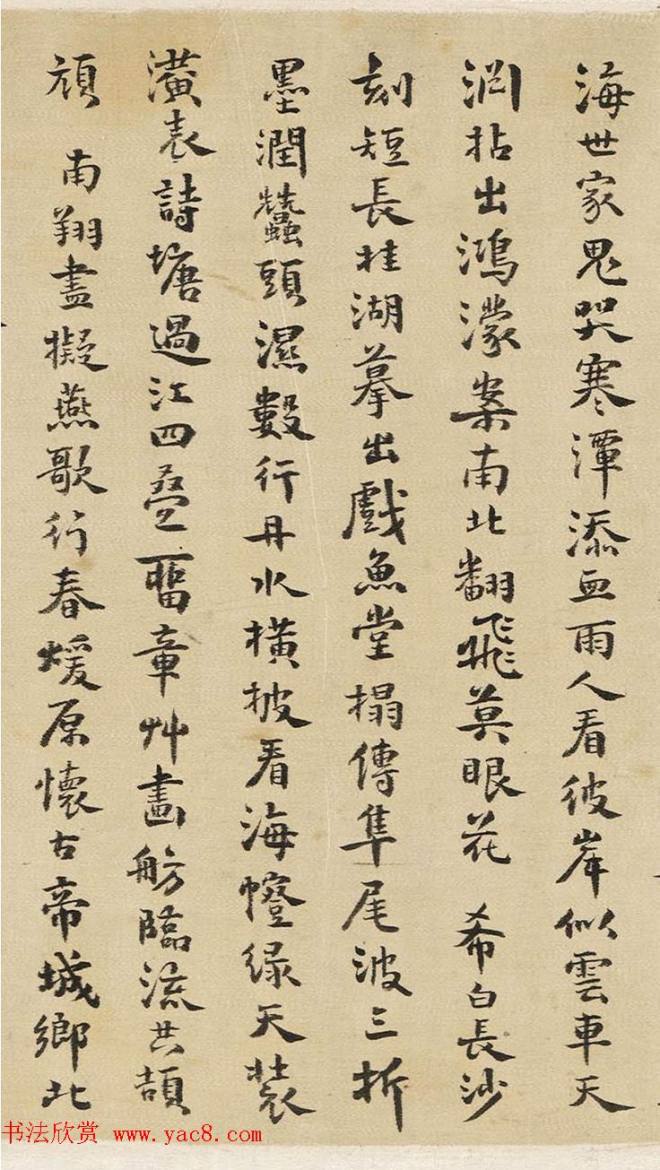 海世家鬼哭寒潭添血雨人看彼岸似雲車天
淵拈出鴻濛案南北翻飛莫眼花 希白長沙
刻短長桂湖摹出戲魚堂搨傳隼尾波三折
墨潤蠶頭濕數行丹水橫披看海幢绿天裝
潢表詩塘過江四疊畱章艸畫舫臨流共頡
頏 南翔盡擬燕歌行春煖原懷古帝城鄉北
书法欣赏 www.yac8.com